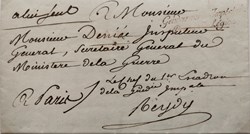 a lui seul
A Monsieur
Monsieur Denisé Inspecteur
General, Secretaire General du
Ministere de la Guerre
A Paris
Le chef du 1er Escadron
de la Garde Impale